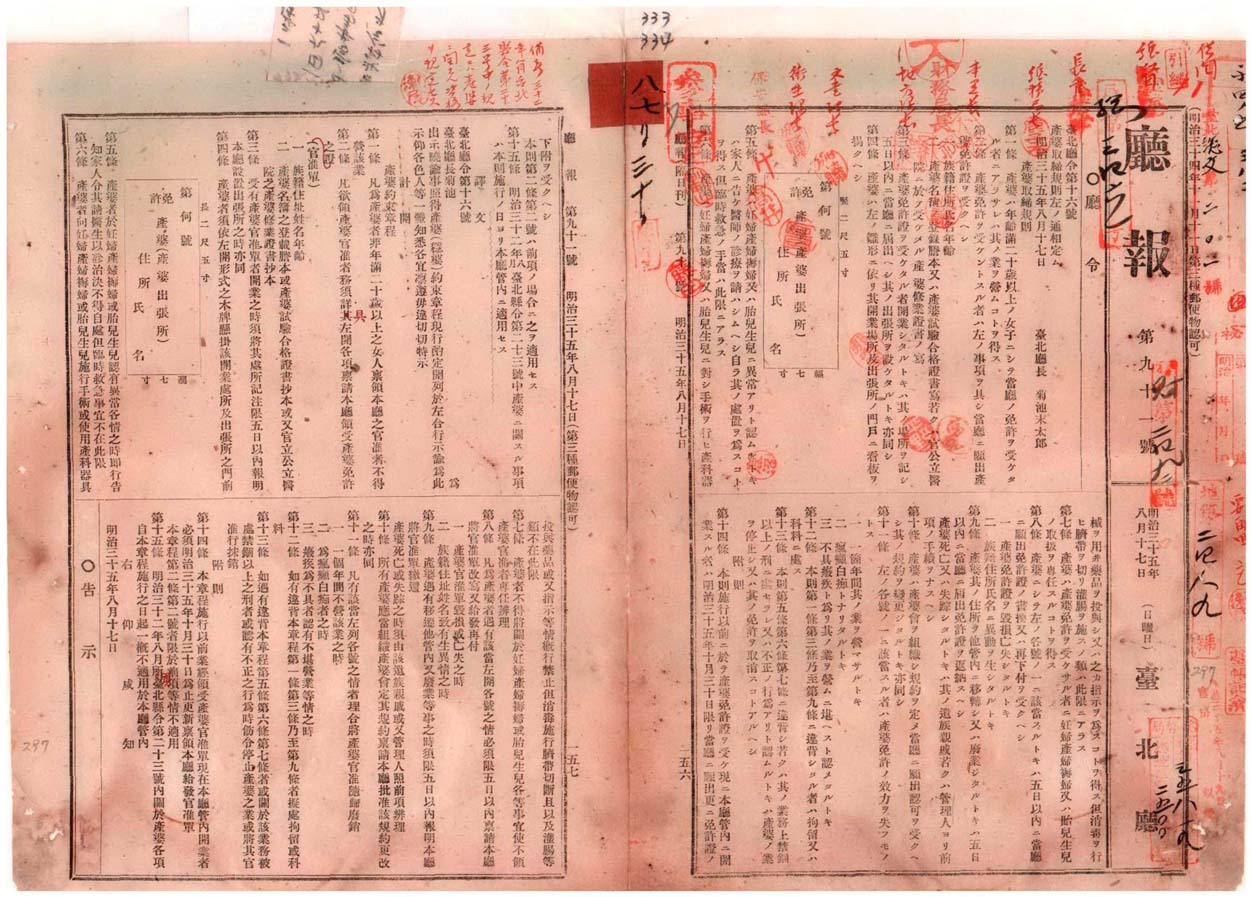 (明治三十四年十一月十一日第三種郵便物認可)
廳報
第九十一號
明治三十五年
八月十七日
(日曜日)
臺北廳
○廳令
臺北廳令第十六號
產婆取締規則左ノ通相定ム
明治三十五年八月十七日
臺北廳長 菊池末太郎
產婆取締規則
第一條 產婆ハ年齡滿二十歲以上ノ女子ニシテ當廳ノ免許ヲ受ケタ
ル者ニアラサレハ其ノ業ヲ營ムコトヲ得ス
第二條 產婆免許ヲ受ケントスル者ハ左ノ事項ヲ具シ當廳ニ願出產
婆免許證ヲ受クヘシ
一 族籍住所氏名年齡
二 產婆名簿ノ登錄謄本又ハ產婆試驗合格證書寫若クハ官公立醫
院ニ於テ受ケタル產婆修業證書ノ寫
第三條 產婆免許ヲ受ケタル者開業シタルトキハ其ノ場所ヲ記シ
五日以內ニ當廳ニ屆出ヘシ其ノ出張所ヲ設ケタルトキ亦同シ
第四條 產婆ハ左ノ雛形ニ依リ其開業場所及出張所ノ門戶ニ看板ヲ
揭クヘシ
竪二尺五寸
第何號
免許 產婆(產婆出張所)
住所氏名
幅七寸
第五條 產婆ハ妊婦產婦褥婦又ハ胎兒生兒ニ異常アリト認ムルトキ
ハ家人ニ告ケ醫師ノ診療ヲ請ハシムヘシ自ラ其ノ處置ヲ爲スコト
ヲ得ス但臨時救急ノ手當ハ此限ニアラス
第六條 產婆ハ妊婦產婦褥婦又ハ胎兒生兒ニ對シ手術ヲ行ヒ產科器
廳報(隔日刊) 第九十一號 明治三十五年八月十七日
械ヲ用井藥品ヲ投與シ又ハ之カ指示ヲ爲スコトヲ得ス但消毒ヲ行
ヒ臍帶ヲ切リ灌腸ヲ施スノ類ハ此限ニアラス
第七條 產婆ハ產婆免許ヲ受ケサル者ニ妊婦產婦褥婦又ハ胎兒生兒
ノ取扱ヲ專任スルコトヲ得ス
第八條 產婆ニシテ左ノ各號ノ一ニ該當スルトキハ五日以內ニ當廳
ニ願出免許證ノ書換又ハ再下付ヲ受クヘシ
一 免許證ノ毀損亡失シタルトキ
二 族籍住所氏名ニ異動ヲ生シタルトキ
第九條 產婆其ノ住所ヲ他ノ管內ニ移轉シ又ハ廢業シタルトキハ五日
以內ニ當廳ニ屆出免許證ヲ返納スヘシ
產婆死亡又ハ失踪シタルトキハ其ノ遺族親戚若クハ管理人ヨリ前
項ノ手續ヲナスヘシ
第十條 產婆ハ產婆會ヲ組織シ規約ヲ定メ當廳ニ願出認可ヲ受クヘ
シ其ノ規約ヲ變更シタルトキ亦同シ
第十一條 左ノ各號ノ一ニ該當スル者ハ產婆免許ノ效力ヲ失フモノ
トス
一 一個年間其ノ業ヲ營マサルトキ
二 瘋癲白痴トナリタルトキ
三 不具癈疾トナリ其ノ業ヲ營ムニ堪ヘスト認メタルトキ
第十二條 本則第一條第三條乃至第九條ニ違背シタル者ハ拘留又ハ
科料ニ處ス
第十三條 本則第五條第六條第七條ニ違背シ若クハ其ノ業務上禁錮
以上ノ刑ニ處セラレ又ハ不正ノ行爲アリト認ムルトキハ產婆ノ業
ヲ停止シ又ハ其ノ免許ヲ取消スコトアルヘシ
附則
第十四條 本則施行以前ニ於テ產婆免許證ヲ受ケ現ニ本廳管內ニ開
業スル者ハ明治三十五年十月三十日限リ當廳ニ願出更ニ免許證ノ
一五六
廳報 第九十一號 明治三十五年八月十七日(第三種郵便物認可)
下附ヲ受クヘシ
本則第二條第二號ハ前項ノ場合ニ之ヲ適用セス
第十五條 明治三十二年八月臺北縣令第二十三號中產婆ニ關スル事項
ハ本則施行ノ日ヨリ本廳管內ニ適用セス
譯文
臺北廳令第十六號
臺北廳長菊池 爲
出示曉諭事照得產婆(穩婆)約束章程現行酌定開列於左合行示諭爲此
示仰各色人等一體知悉各宜凛遵毋違切切特示
計開
產婆約束章程
第一條 凡爲產婆者非年滿二十歲以上之女人禀領本廳之官准者不得
營該業
第二條 凡欲領產婆官准者務須詳具左開各項禀請本廳領受產婆免許
之證
(官准單)
一 族籍住址姓名年齡
二 產婆名簿之登載謄本或產婆試驗合格證書抄本或又官立公立醫
院之產婆修業證書抄本
第三條 受有產婆官准單者開業之時須將其處所記注限五日以內報明
本廳設置出張所之時亦同
第四條 產婆者須依左開形式之木牌懸掛該開業處所及出張所之門前
長二尺五寸
第何號
免許 產婆(產婆出張所)
住所氏名
濶七寸
第五條 產婆者於妊婦產婦褥婦或胎兒生兒認有異常各情之時即行告
知家人令其請醫生以診治决不得自處但臨時救急事宜不在此限
第六條 產婆者向妊婦產婦褥婦或胎兒生兒施行手術或使用產科器具
投與藥品或又指示等情槪行禁止但消毒施行臍帶切斷且以及灌腸等
類不在此限
第七條 產婆者不得將關於妊婦產婦褥婦或胎兒生兒各等事宜使不領
產婆官准者專任辨理
第八條 凡爲產婆者遇有該當左開各號之情必須限五日以內禀請本廳
將官准單改寫又給發再付
一 產婆官准單毀損或亡失之時
二 族籍住址姓名致有生異情之時
第九條 產婆遇有移遞他管內又廢業等事之時須限五日以內報明本廳
將官准單繳還
產婆死亡或失踪之時須由該遺族親戚或又管理人照前項辨理
第十條 所有產婆廳當組織產婆會定其規約禀請本廳批准該規約更改
之時亦同
第十一條 凡有該當左列各號之情者理合將產婆官准隨歸廢銷
一 一個年間不營該業之時
二 爲瘋癲白痴者之時
三 癈疾爲不具者認有不堪營業等情之時
第十二條 如有違背本章程第一條第三條乃至第九條者擬處拘留或科
料
第十三條 如過有違背本章程第五條第六條第七條者或關於該業務被
處禁錮以上之刑者或聽有不正之行爲時飭令停止產婆之業或將其官
准行抹銷
附則
第十四條 本章程施行以前業經領受產婆官准單現在本廳管內開業者
必須明治三十五年十月三十日爲止更新禀領本廳給發官准單
本章程第二條第二號者限於前項等情不適用
第十五條 明治三十二年八月所有臺北縣令第二十三號內關於產婆各項
自本章程施行之日起一槪不適用於本廳管內
右仰咸知
明治三十五年八月十七日
○告示
一五七
333
334
八七ノ三十一
297